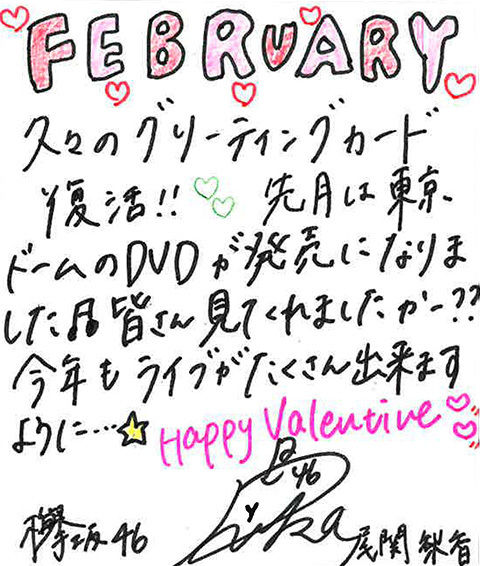 FEBRUARY
久々のグリーティングカード
復活!! 先月は東京
ドームのDVDが発売になりま
した♬皆さん見てくれましたかー??
今年もライブがたくさん出来ます
ように…☆ Happy Valentine
欅坂46 尾関梨香